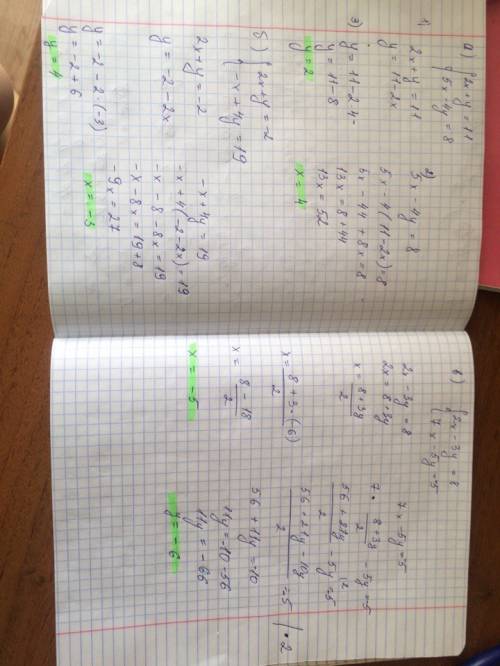 а) { 2x + y = 11
{ 5x - 4y = 8
1)
2x + y = 11
y = 11 - 2x
3)
y = 11 - 2·4
y = 11 - 8
y = 2
2)
5x - 4y = 8
5x - 4(11 - 2x) = 8
5x - 44 + 8x = 8
13x = 8 + 44
13x = 52
x = 4
б) { 2x + y = -2
{ -x + 4y = 19
2x + y = -2
y = -2 - 2x
y = -2 - 2·(-3)
y = -2 + 6
y = 4
-x + 4y = 19
-x + 4(-2 - 2x) = 19
-x - 8 - 8x = 19
-x - 8x = 19 + 8
-9x = 27
x = -3
в) { 2x - 3y = 8
{ 7x - 5y = -5
2x - 3y = 8
2x = 8 + 3y
x = (8 + 3y)/2
x = (8 + 3·(-6))/2
x = (8 - 18)/2
x = -5
7x - 5y = -5
7 · (8 + 3y)/2 - 5y = -5
(56 + 21y)/2 - 5y (2 = -5
(56 + 21y - 10y)/2 = -5 | · 2
56 + 11y = -10
11y = -10 - 56
11y = -66
y = -6